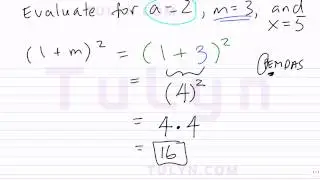 Evaluate for a=2, m=3, and x=5
(1+m)² = (1+3)²
PEMDAS
= (4)²
= 4·4
= 16
Tulyn
TULYN.COM